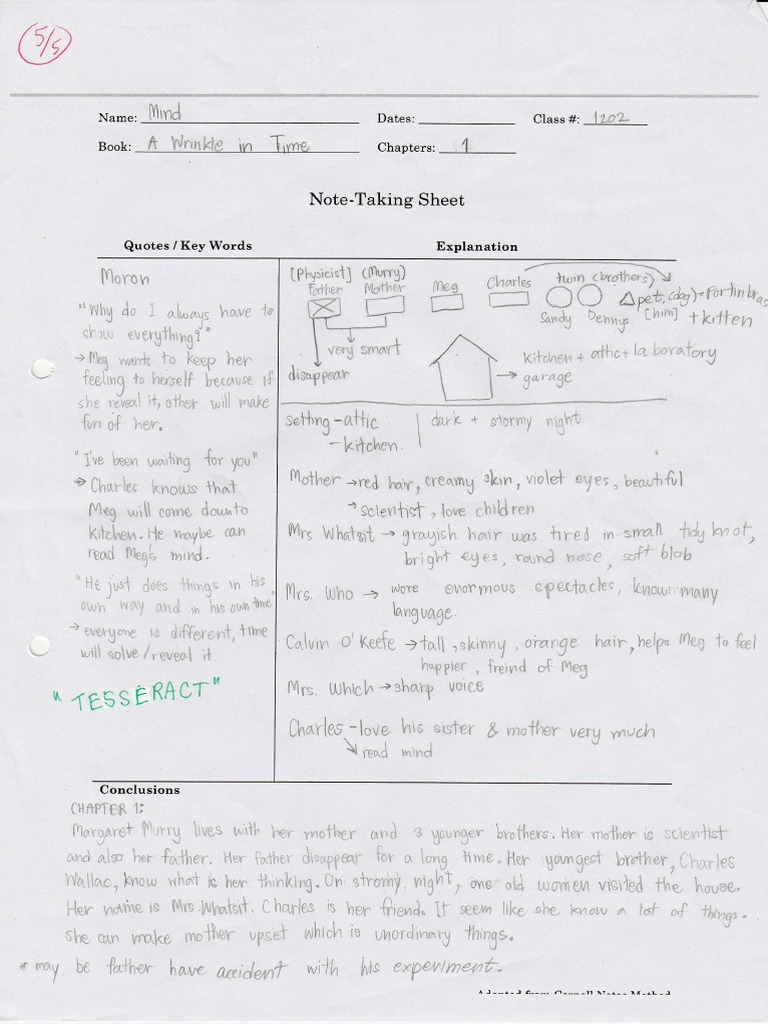 5/5
Name: Mind Dates: Class #: 1202
Book: A Wrinkle in Time Chapters: 1
Note-Taking Sheet
Quotes / Key Words
Moron
"Why do I always have to
show everything?"
→ Meg wants to keep her
feeling to herself because if
she reveal it, other will make
fun of her.
"I've been waiting for you"
→ Charles knows that
Meg will come down to
kitchen. He maybe can
read Meg's mind.
"He just does things in his
own way and in his own time"
→ everyone is different, time
will solve/reveal it.
"TESSERACT"
Explanation
[Physicist] (Murry)
Father Mother Meg Charles twin (brothers)
Sandy Dennys
pet. (dog) = Fortinbras
[him] + kitten
very smart
disappear
→ kitchen + attic + laboratory
garage
setting - attic
- kitchen.
dark + stormy night.
Mother → red hair, creamy skin, violet eyes, beautiful
→ scientist, love children
Mrs Whatsit → grayish hair was tired in small tidy knot,
bright eyes, round nose, soft blob
Mrs. Who → wore enormous spectacles, know many
language.
Calvin O'Keefe → tall, skinny, orange hair, helps Meg to feel
happier, freind of Meg
Mrs. Which → sharp voice
Charles - love his sister & mother very much
read mind
Conclusions
CHAPTER 1:
Margaret Murry lives with her mother and 3 younger brothers. Her mother is scientist
and also her father. Her father disappear for a long time. Her youngest brother, Charles
Wallac, know what is her thinking. On stromy night, one old women visited the house.
Her name is Mrs. Whatsit. Charles is her friend. It seem like she know a lot of things.
She can make mother upset which is unordinary things.
* may be father have accident with his experiment.
Adapted from Cornell Notes Method